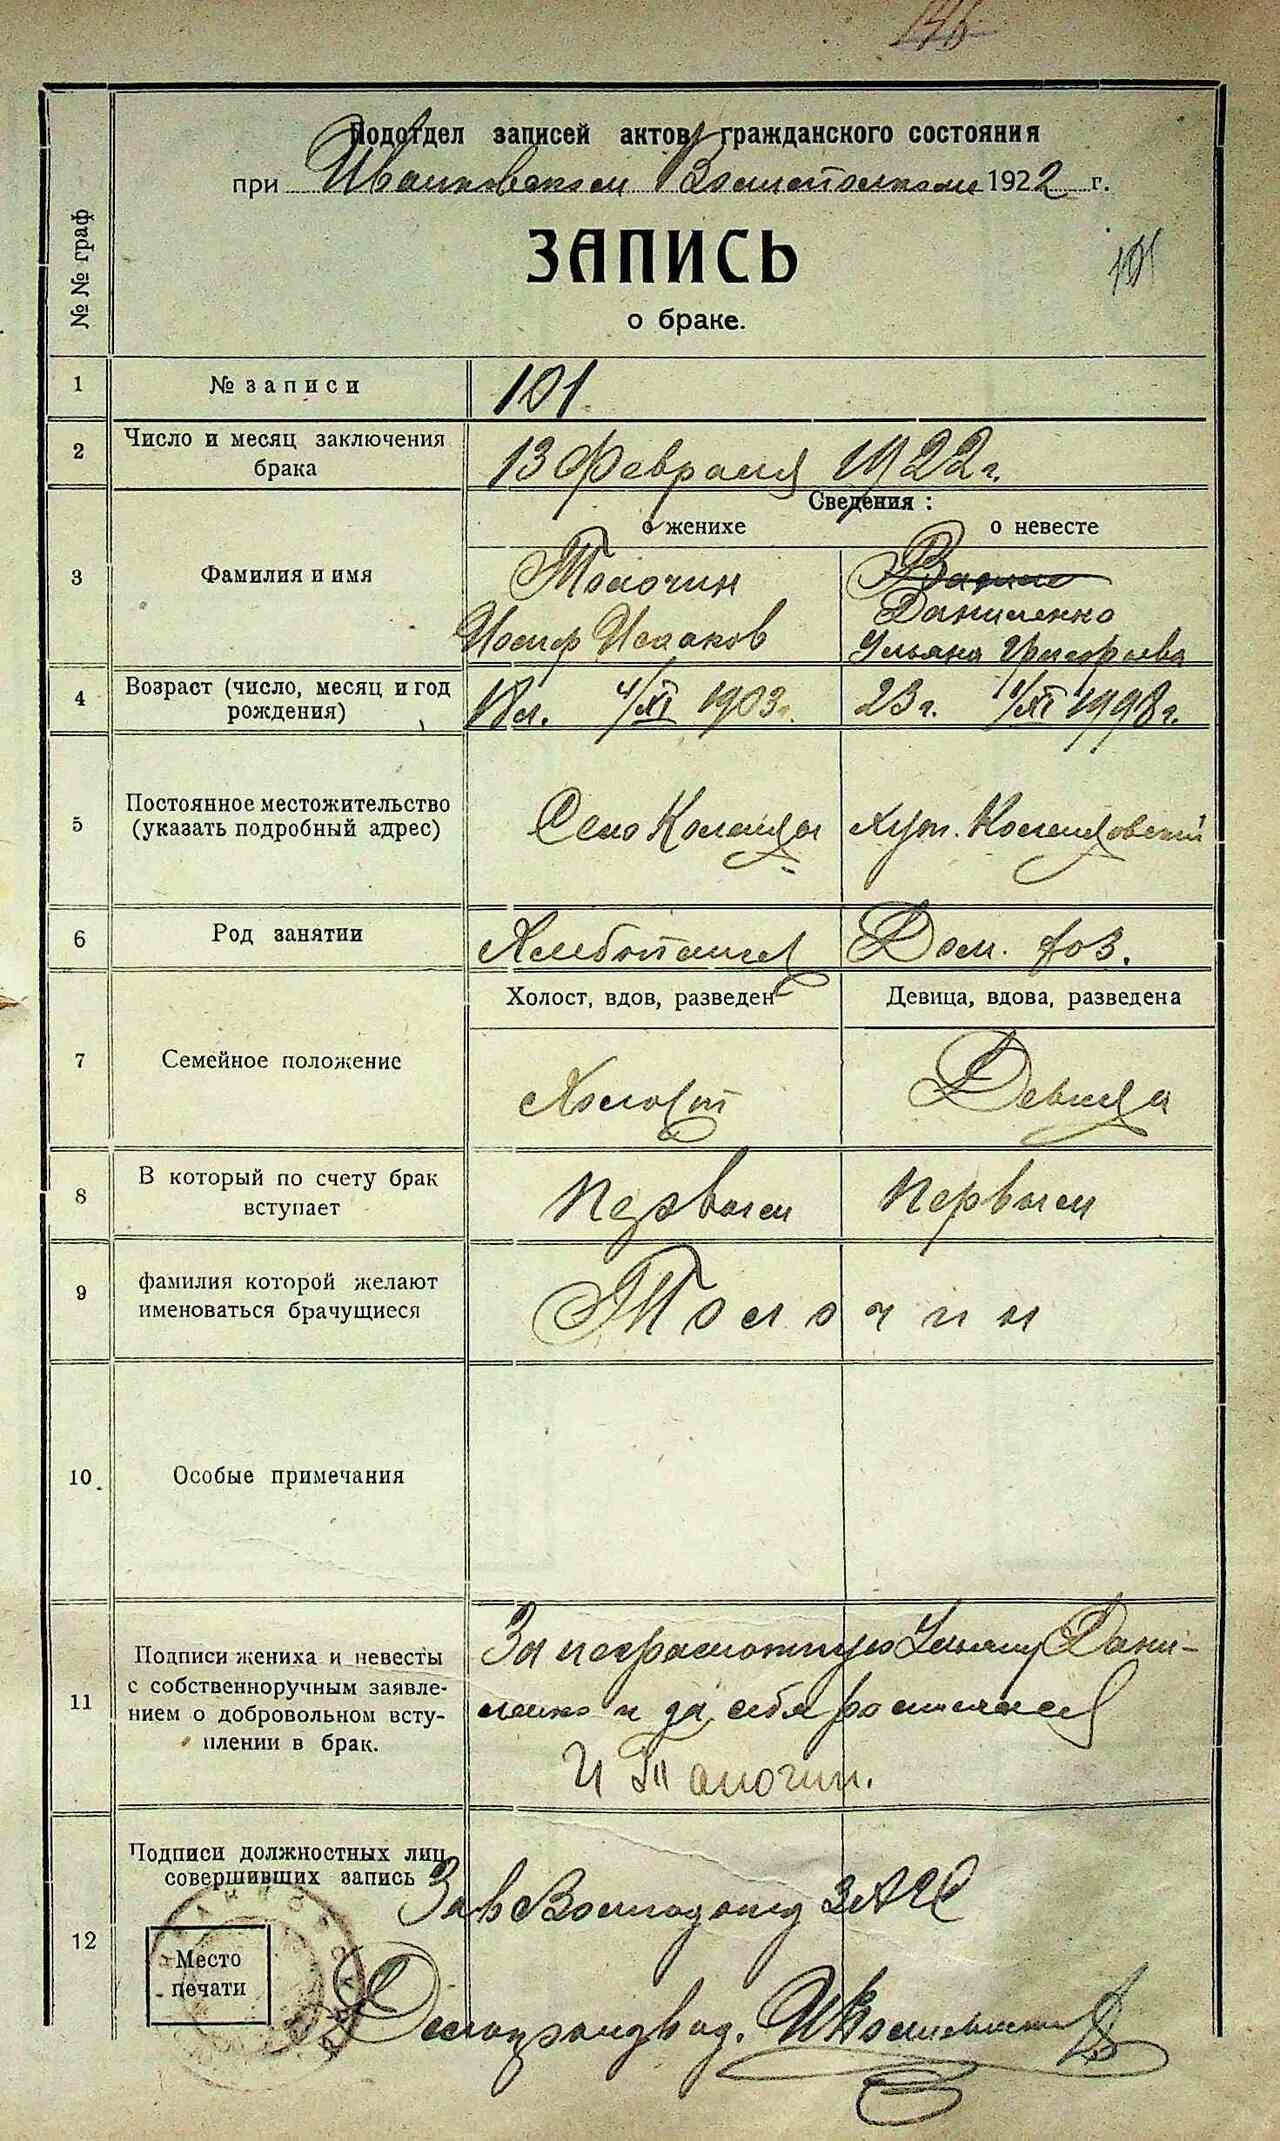 Подотдел записей актов гражданского состояния
при Ивановском Волисполкоме 1922 г.
ЗАПИСЬ
о браке.
101
№№ граф
1 № записи 101
2 Число и месяц заключения брака 13 Февраля 1922 г.
Сведения:
о женихе о невесте
3 Фамилия и имя
Толочин
Иосиф Исааков
Даниленко
Ульяна Григорьева
4 Возраст (число, месяц и год рождения) 18 л. 4/XI 1903 г. 23 г. 1/XI 1998 г.
5 Постоянное местожительство (указать подробный адрес) Село хут.
6 Род занятии Хлебопашец Дом. хоз.
Холост, вдов, разведен Девица, вдова, разведена
7 Семейное положение Холост Девица
8 В который по счету брак вступает Первым Первым
9 фамилия которой желают именоваться брачущиеся Толочин
10 Особые примечания
11 Подписи жениха и невесты с собственноручным заявлением о добровольном вступлении в брак.
За неграмотную Ульяну Дани-
ленко и за себя росписался
И Талочин.
12 Подписи должностных лиц совершивших запись
Место
печати
Зав ЗАГС
Делопроизвод.